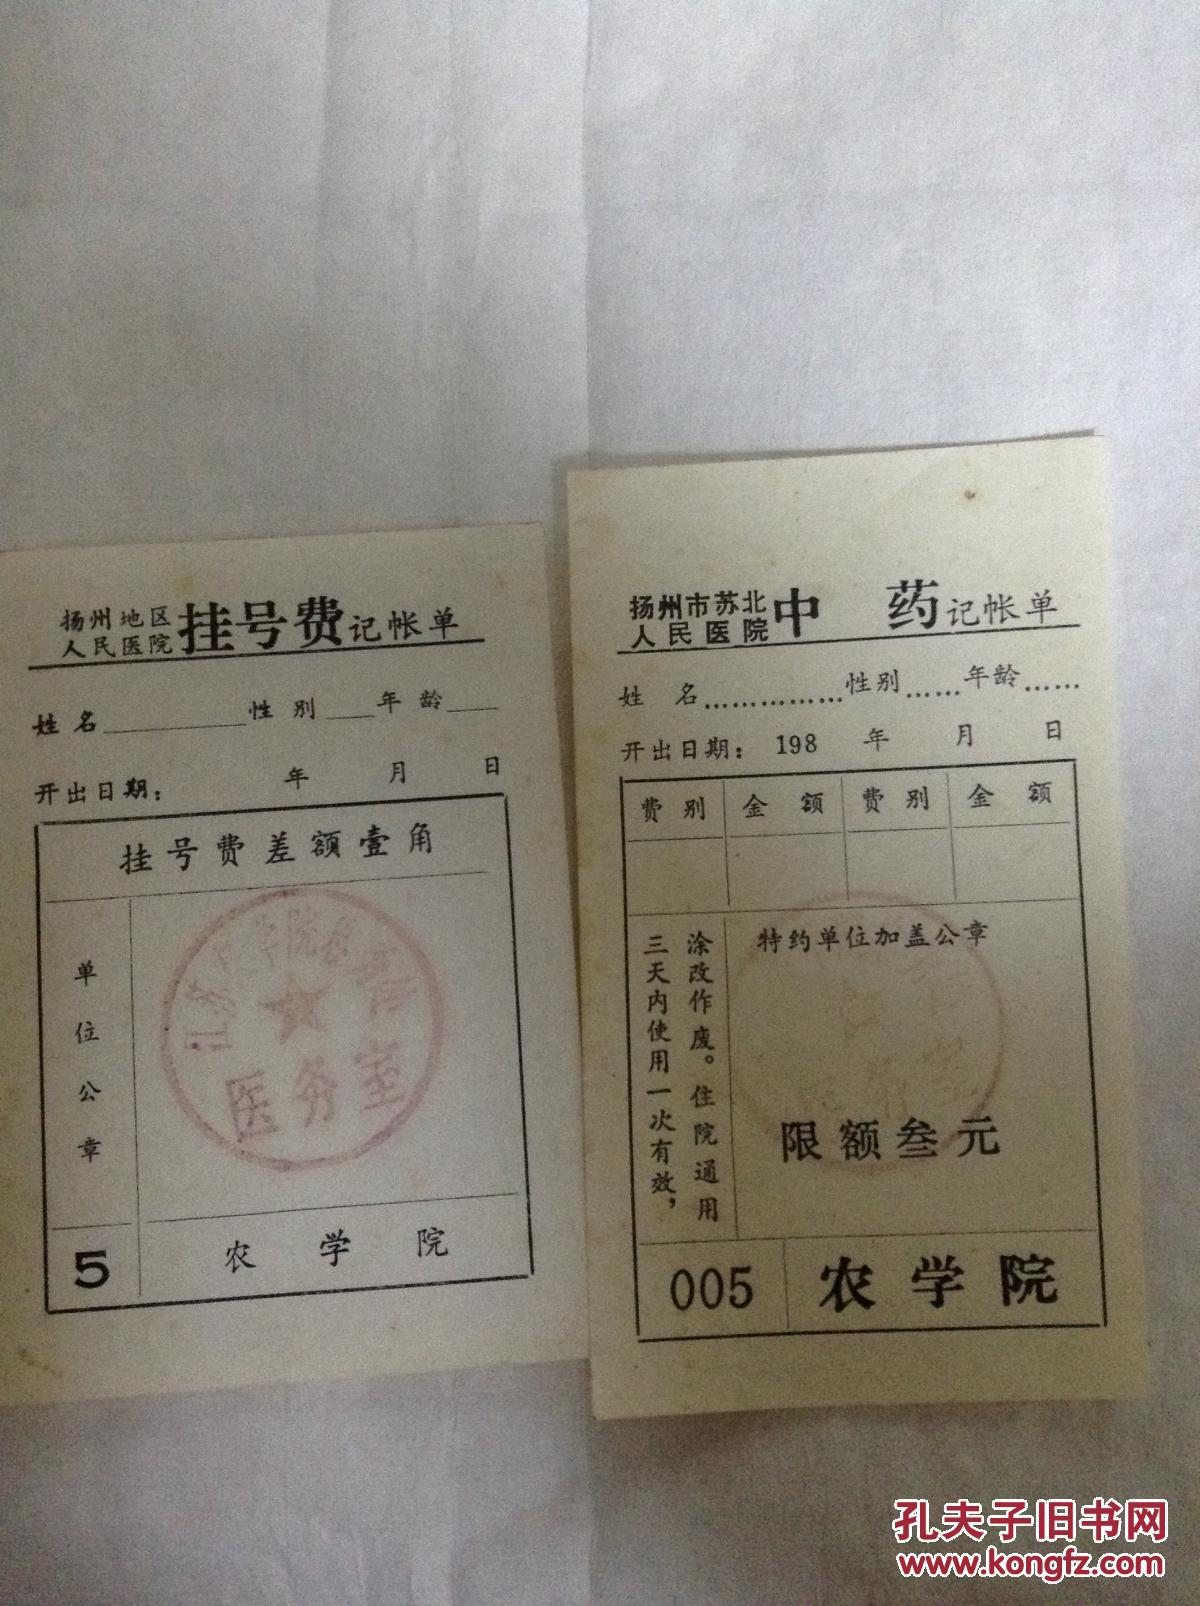 扬州地区
人民医院
挂号费记帐单
姓名 性别 年龄
开出日期： 年 月 日
挂号费差额壹角
单位公章
医务室
5 农学院
扬州市苏北
人民医院
中药记帐单
姓名……………性别……年龄……
开出日期：198 年 月 日
费别 金额 费别 金额
特约单位加盖公章
三天内使用一次有效，
涂改作废。住院通用
限额叁元
005 农学院
孔夫子旧书网
www.kongfz.com